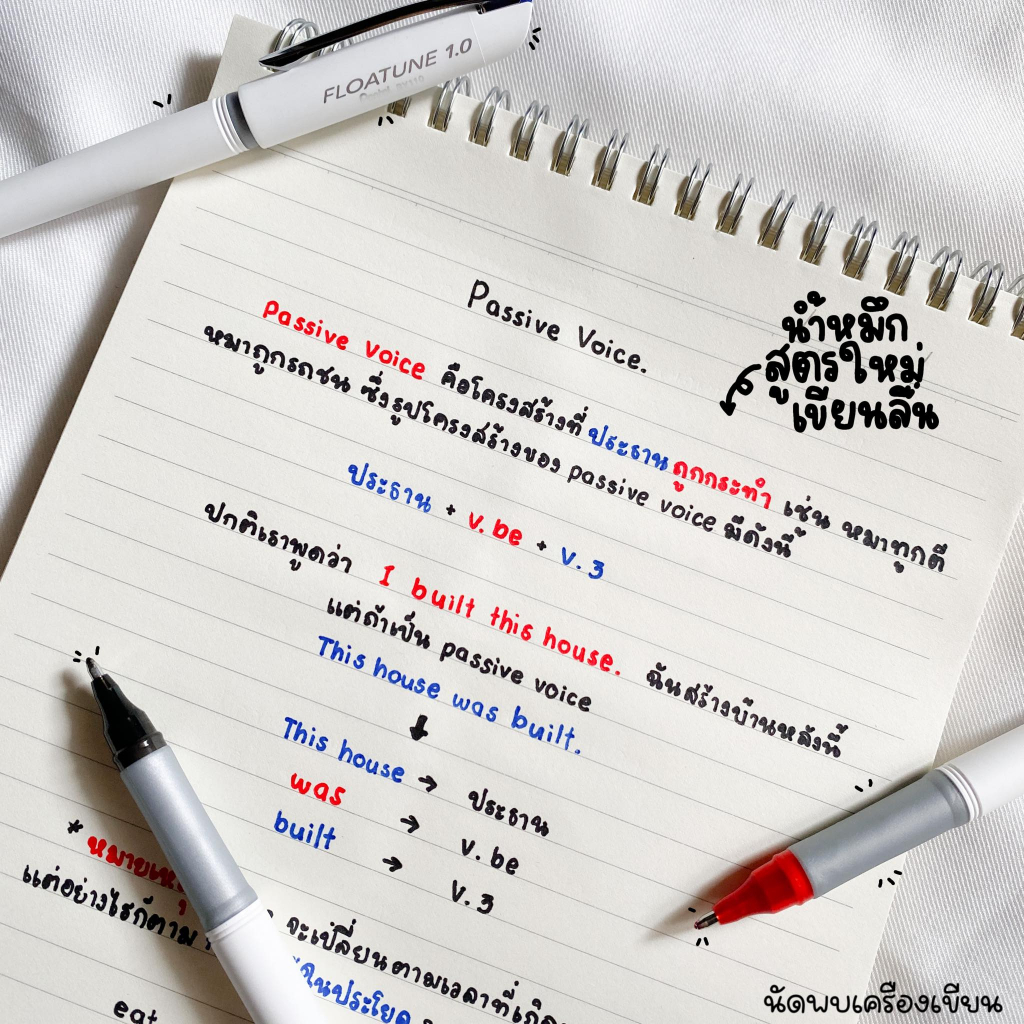 FLOATUNE 1.0
Passive Voice.
น้ำหมึก
สูตรใหม่
เขียนลื่น
Passive voice คือโครงสร้างที่ ประธานถูกกระทำ เช่น หมาทูกตี
หมาถูกรถชน ซึ่งรูปโครงสร้างของ passive voice มีดังนี้
ประธาน + v.be + v.3
ปกติเราพูดว่า I built this house. ฉันสร้างบ้านหลังนี้
แต่ถ้าเป็น passive voice
This house was built.
This house → ประธาน
was → v.be
built → v.3
* หมายเหตุ
แต่อย่างไรก็ตาม จะเปลี่ยนตามเวลาที่เกิด
ในประโยค
eat
นัดพบเครื่องเขียน